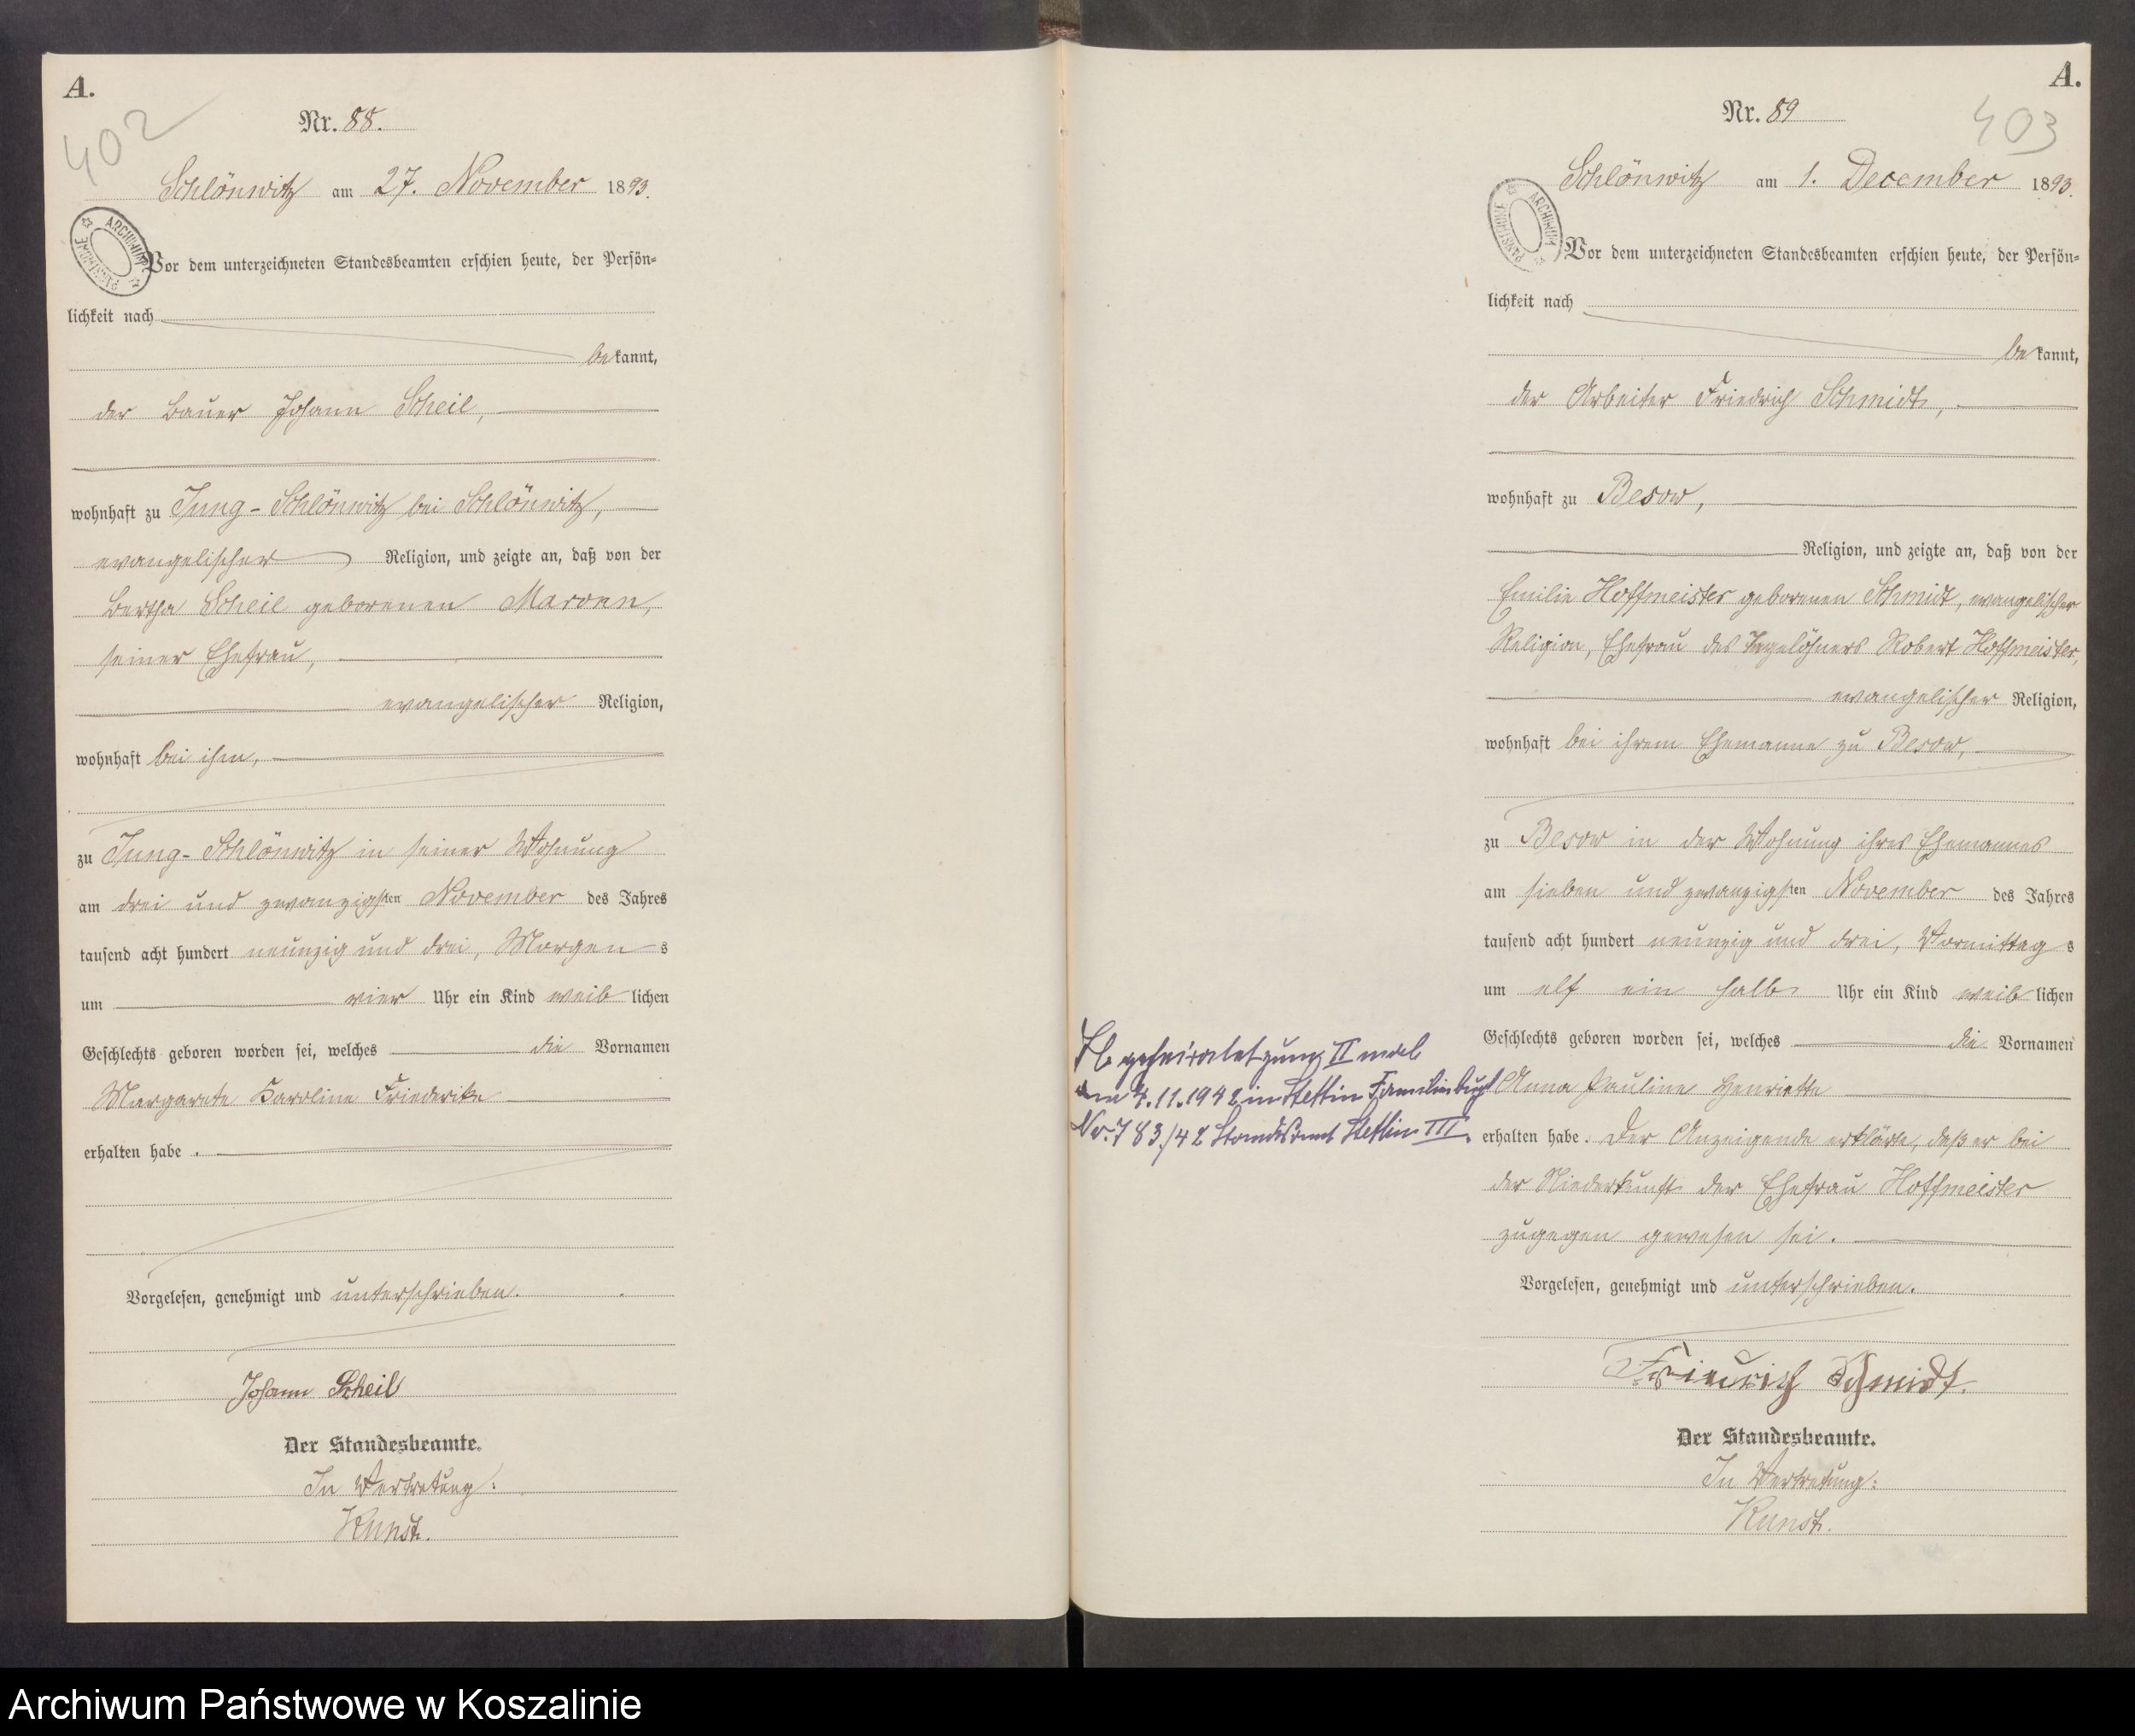 A.
402
Nr. 88.
Schlönwitz am 27. November 1893.
ARCHIWUM PAŃSTWOWE
Vor dem unterzeichneten Standesbeamten erschien heute, der Persön=
lichkeit nach
bekannt,
der Bauer Johann Scheil,
wohnhaft zu Jung-Schlönwitz bei Schlönwitz,
evangelischer Religion, und zeigte an, daß von der
Bertha Scheil geborenen
seiner Ehefrau,
evangelischer Religion,
wohnhaft bei ihm,
zu Jung-Schlönwitz in seiner Wohnung
am drei und zwanzigsten November des Jahres
tausend acht hundert neunzig und drei, Morgens
um vier Uhr ein Kind weiblichen
Geschlechts geboren worden sei, welches die Vornamen
Margarete Karoline Friederike
erhalten habe.
Vorgelesen, genehmigt und unterschrieben.
Johann Scheil
Der Standesbeamte.
In Vertretung:
Kunst.
A.
403
Nr. 89
Schlönwitz am 1. December 1893.
ARCHIWUM PAŃSTWOWE
Vor dem unterzeichneten Standesbeamten erschien heute, der Persön=
lichkeit nach
bekannt,
der Arbeiter Friedrich Schmidt,
wohnhaft zu Besow,
Religion, und zeigte an, daß von der
Emilie Hoffmeister geborenen Schmidt, evangelischer
Religion, Ehefrau des Tagelöhners Robert Hoffmeister,
evangelischer Religion,
wohnhaft bei ihrem Ehemanne zu Besow,
zu Besow in der Wohnung ihres Ehemannes
am sieben und zwanzigsten November des Jahres
tausend acht hundert neunzig und drei, Vormittags
um elf ein halb Uhr ein Kind weiblichen
Geschlechts geboren worden sei, welches die Vornamen
Anna Pauline Henriette
erhalten habe. Der Anzeigende erklärte, daß er bei
der Niederkunft der Ehefrau Hoffmeister
zugegen gewesen sei.
Vorgelesen, genehmigt und unterschrieben.
Friedrich Schmidt.
Der Standesbeamte.
In Vertretung:
Kunst.
geheiratet zum II mal
am 4.11.1942 in Stettin Familienbuch
Nr. 783./42 Standesamt Stettin III.
Archiwum Państwowe w Koszalinie